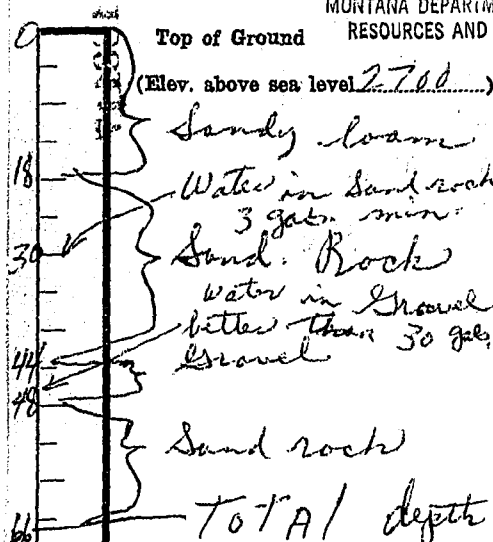 MONTANA DEPARTM
RESOURCES AND
0
Top of Ground
(Elev. above sea level 2700)
Sandy loam
18
Water in Sand rock
3 gals. min.
30
Sand. Rock
water in Gravel
better than 30 gals,
44
Gravel
48
Sand rock
66
TOTAl depth